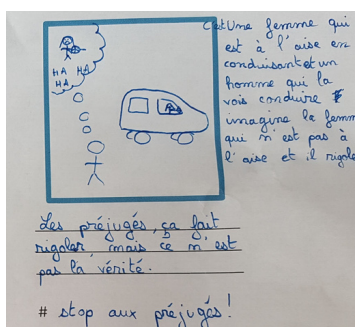 HA HA
HA
C'est Une femme qui
est à l'aise en
conduisant et un
homme qui la
vois conduire
imagine la femm
qui n'est pas à
l'aise et il rigole
Les préjugés, ça fait
rigoler mais ce n'est
pas la vérité.
# stop aux préjugés !